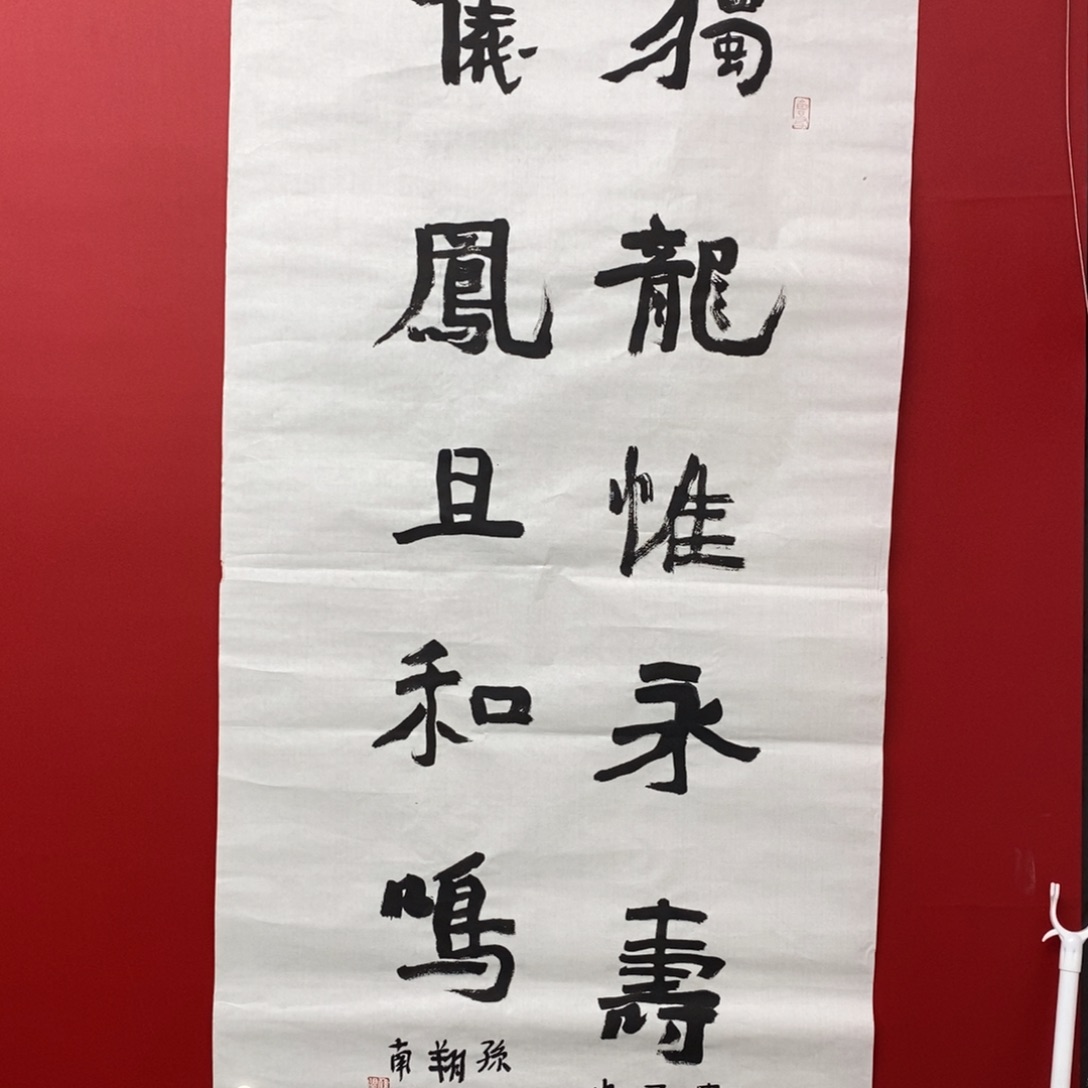 獨龍惟永壽
儀鳳且和鳴
孫翔南